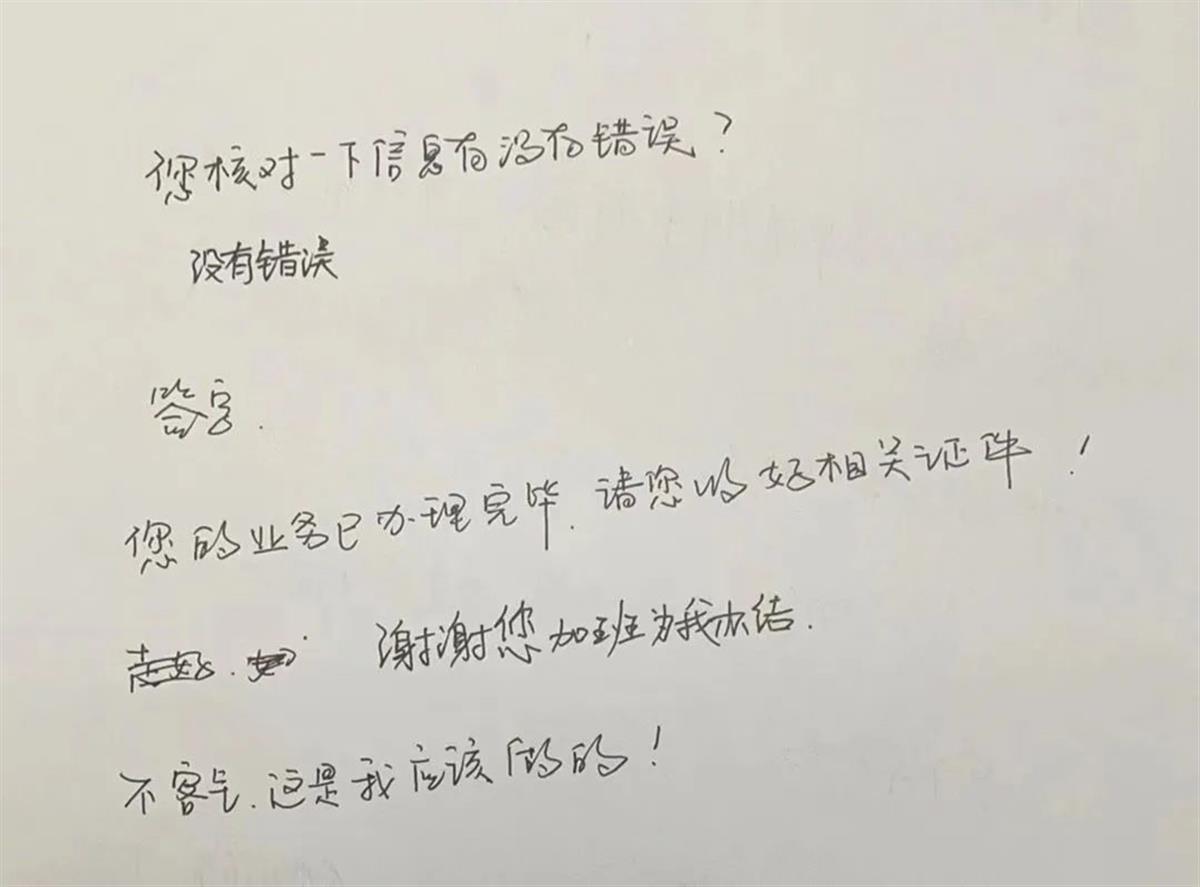 您核对一下信息有没有错误？
没有错误
签字.
您的业务已办理完毕.请您收好相关证件！
谢谢您加班为我办结.
不客气.这是我应该做的！